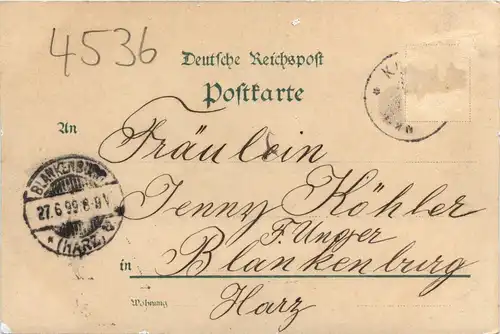 4536
Deutsche Reichspost
Postkarte
An
Fräulein
Jenny Köhler
F. Unger
in Blankenburg
Wohnung
Harz
BLANKENBURG
27.6.99 8-9V
* (HARZ) *